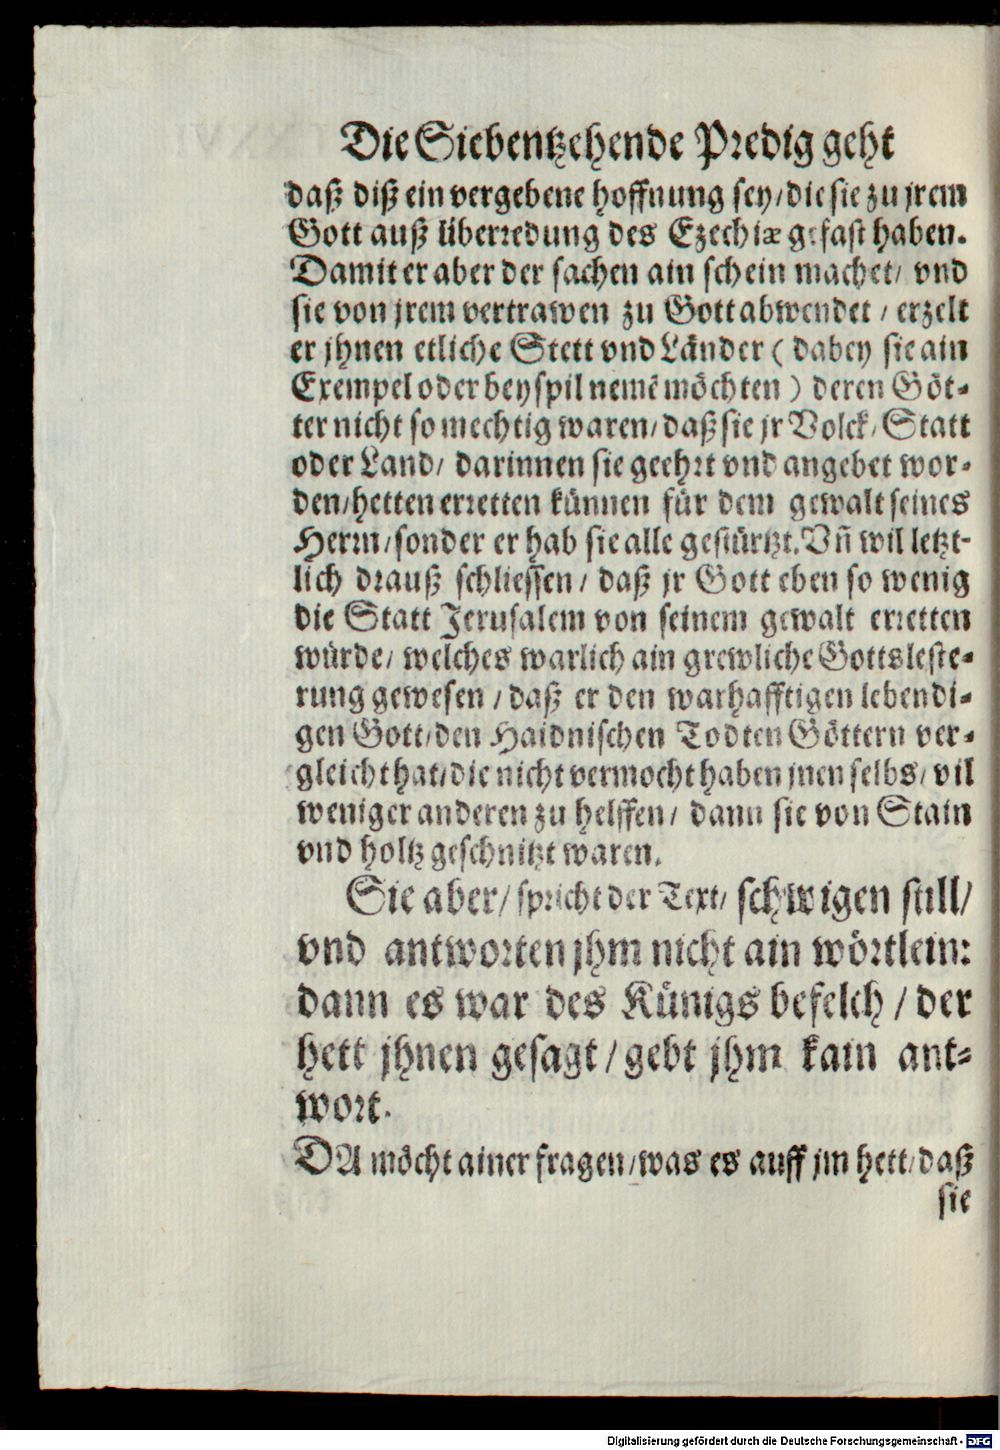 Die Siebentzehende Predig geht
daß diß ein vergebene hoffnung sey/die sie zu jrem
Gott auß überredung des Ezechiæ gefast haben.
Damit er aber der sachen ain schein machet/ vnd
sie von jrem vertrawen zu Gott abwendet / erzelt
er jhnen etliche Stett vnd Länder ( dabey sie ain
Exempel oder beyspil nemẽ möchten ) deren Göt-
ter nicht so mechtig waren/ daß sie jr Volck/ Statt
oder Land/ darinnen sie geehrt vnd angebet wor-
den/hetten erretten künnen für dem gewalt seines
Herrn/sonder er hab sie alle gestürtzt. Vñ wil letzt-
lich drauß schliessen / daß jr Gott eben so wenig
die Statt Jerusalem von seinem gewalt erretten
würde/ welches warlich ain grewliche Gottsleste-
rung gewesen / daß er den warhafftigen lebendi-
gen Gott/den Haidnischen Todten Göttern ver-
gleicht hat/die nicht vermocht haben jnen selbs/ vil
weniger anderen zu helffen/ dann sie von Stain
vnd holtz geschnitzt waren.
Sie aber/ spricht der Text/ schwigen still/
vnd antworten jhm nicht ain wörtlein:
dann es war des Künigs befelch / der
hett jhnen gesagt / gebt jhm kain ant-
wort.
DA möcht ainer fragen/was es auff jm hett/daß
sie
Digitalisierung gefördert durch die Deutsche Forschungsgemeinschaft - DFG